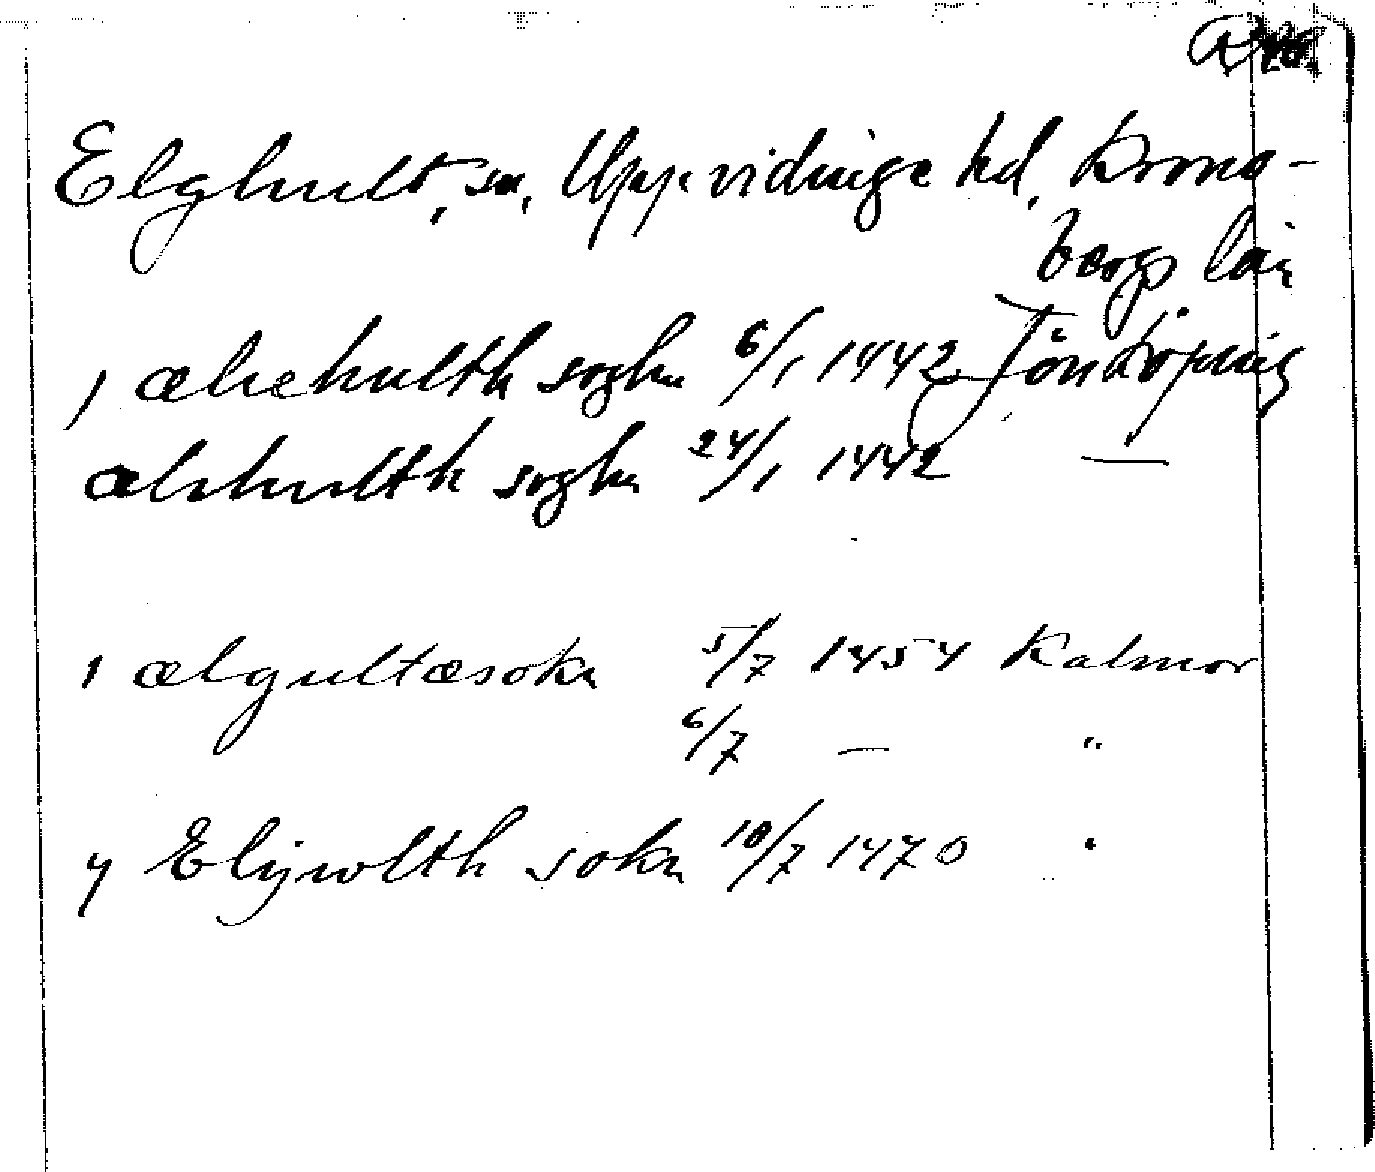 Elghult, sn, Uppvidinge hd, Krono-
bergs län
1 ælhehulth soghn 6/1 1442 Jönköping
ælhhulth soghn 24/1 1442 —
1 ælgultæsokn 5/7 1454 Kalmar
6/7 — "
y Elijwlth sokn 10/7 1470 "